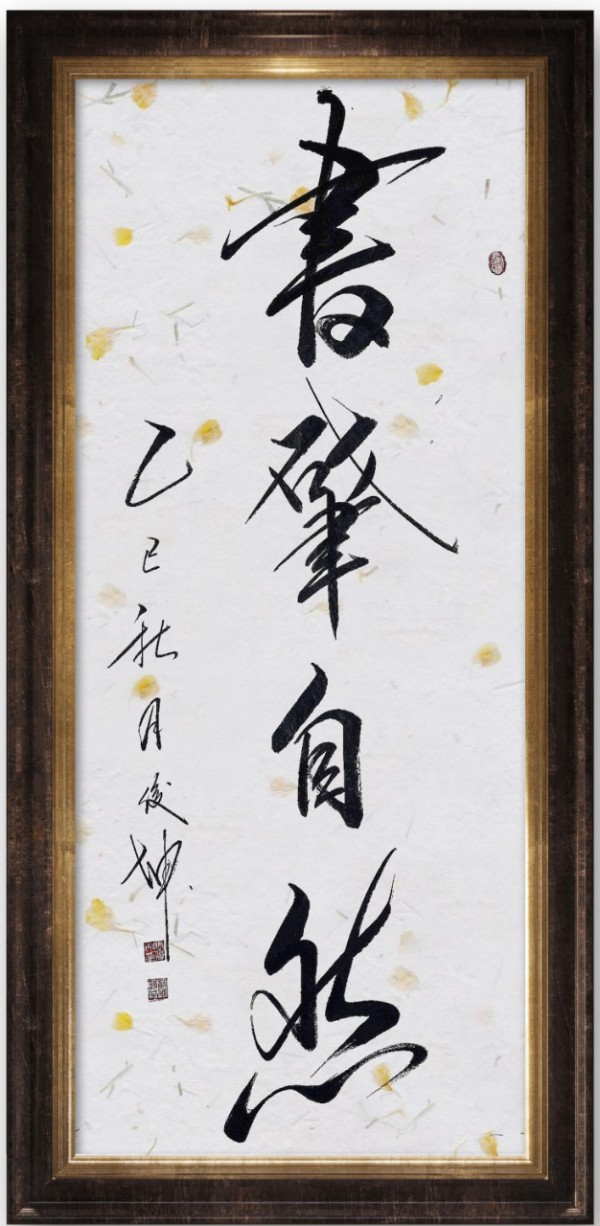 書肇自然
乙巳秋月俊坤